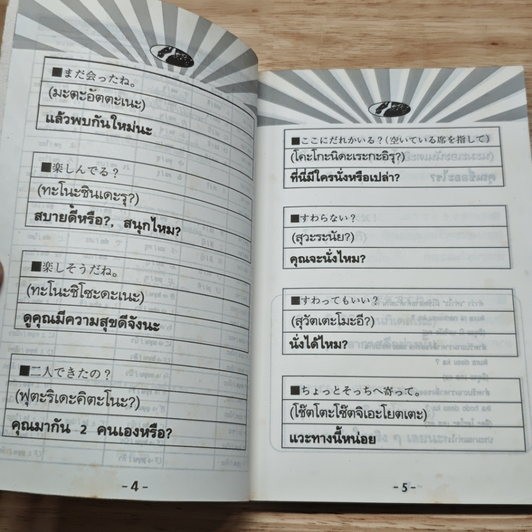 ■まだ会ったね。
(มะตะอัตตะเนะ)
แล้วพบกันใหม่นะ
■楽しんでる?
(ทะโนะชินเดะรุ?)
สบายดีหรือ?, สนุกไหม?
■楽しそうだね。
(ทะโนะชิโซะดะเนะ)
ดูคุณมีความสุขดีจังนะ
■二人できたの?
(ฟุตะริเดะคิตะโนะ?)
คุณมากัน 2 คนเองหรือ?
- 4 -
■ここにだれかいる?(空いている席を指して)
(โคะโกะนิดะเระกะอิรุ?)
ที่นี่มีใครนั่งหรือเปล่า?
■すわらない?
(สุวะระนัย?)
คุณจะนั่งไหม?
■すわってもいい?
(สุวัตเตะโมะอี?)
นั่งได้ไหม?
■ちょっとそっちへ寄って。
(โช๊ตโตะโซ๊ตจิเอะโยตเตะ)
แวะทางนี้หน่อย
- 5 -